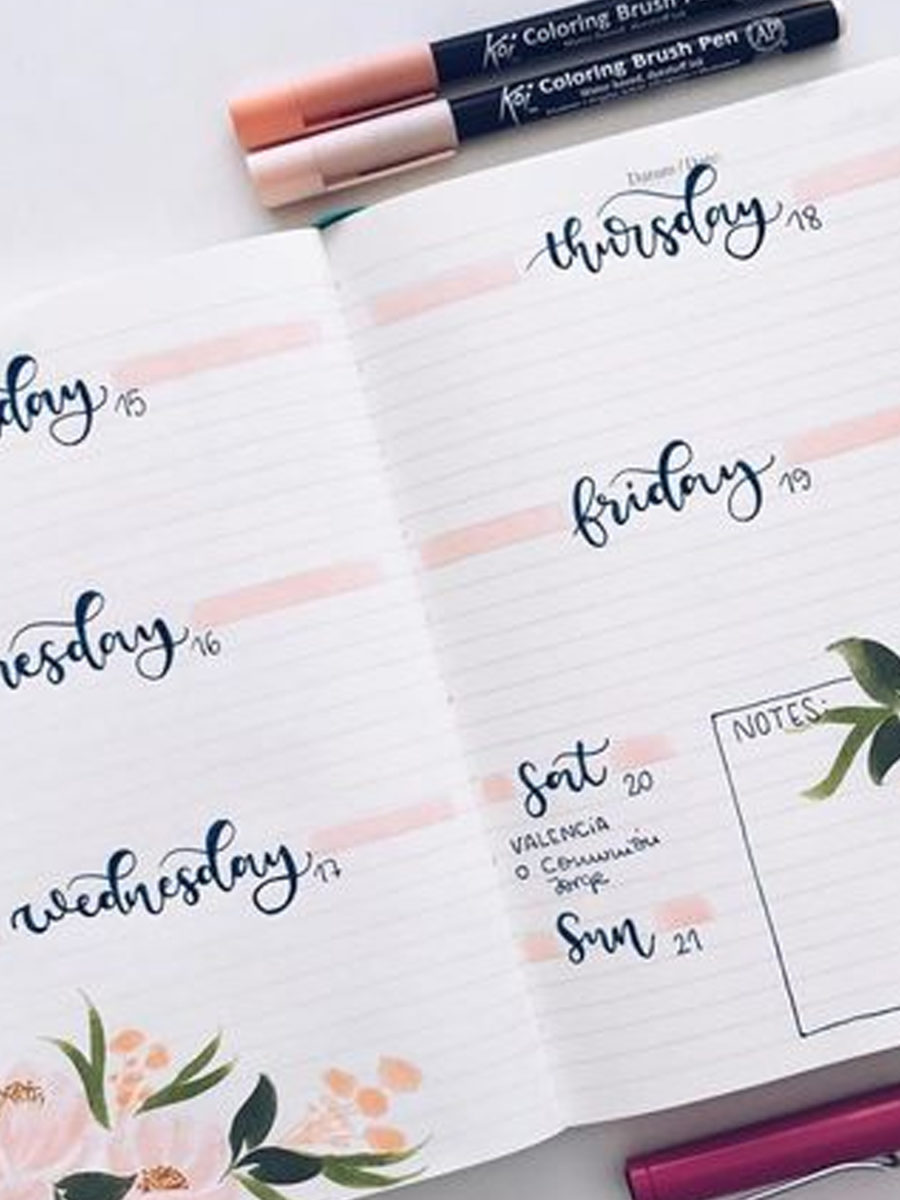 Koi Coloring Brush
Koi Coloring Brush Pen AP
Water based, dyestuff ink
Datum / Date:
day 15
nesday 16
wednesday 17
thursday 18
friday 19
sat 20
VALENCIA
o Comunión
Jorge
sun 21
NOTES: